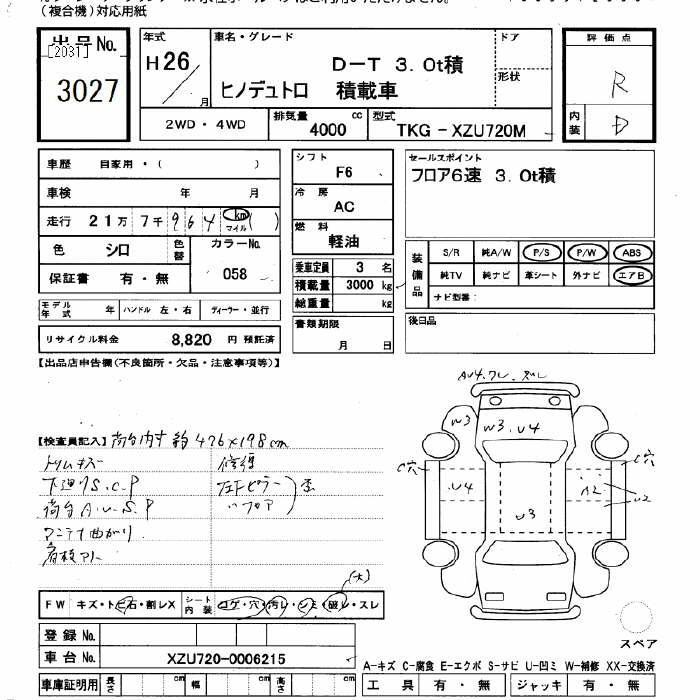 (複合機)対応用紙
出品No.
[2031]
3027
年式
H26
月
車名・グレード
D-T 3.0t積
ヒノデュトロ 積載車
ドア
形状
評価点
R
内装
D
2WD・4WD
排気量
4000
cc
型式
TKG-XZU720M
車歴 自家用・( )
車検 年 月
走行 21万7千964 km マイル ( )
色 シロ
色替
カラーNo.
058
保証書 有・無
モデル年式 年 ハンドル 左・右 ディーラー・並行
リサイクル料金 8,820 円 預託済
シフト
F6
冷房
AC
燃料
軽油
乗車定員 3 名
積載量 3000 kg
総重量 kg
書類期限
月 日
セールスポイント
フロア6速 3.0t積
装備品
S/R 純A/W P/S P/W ABS
純TV 純ナビ 革シート 外ナビ エアB
ナビ型番:
後日品
【出品店申告欄(不良箇所・欠品・注意事項等)】
【検査員記入】荷台内寸 約476×198cm
トリムキズ 修理
下廻りS.C.P
荷台A.U.S.P
フロア
アンテナ曲がり
看板アト
AU4.ワレ
W3
W3.U4
C穴
C穴
U4
A2
U2
U3
FW キズ・トビ石・割レX
シート内装
コゲ・穴・汚レ・シミ・破レ・スレ
(大)
登録No.
車台No. XZU720-0006215
車庫証明用 長さ cm 幅 cm 高さ cm
スペア
A-キズ C-腐食 E-エクボ S-サビ U-凹ミ W-補修 XX-交換済
工具 有・無 ジャッキ 有・無